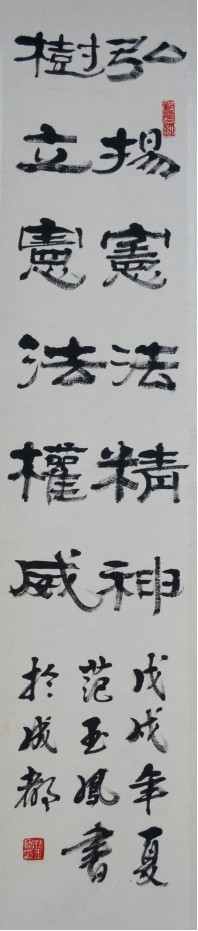 弘揚憲法精神
樹立憲法權威
戊戌年夏
范玉鳳書
於成都